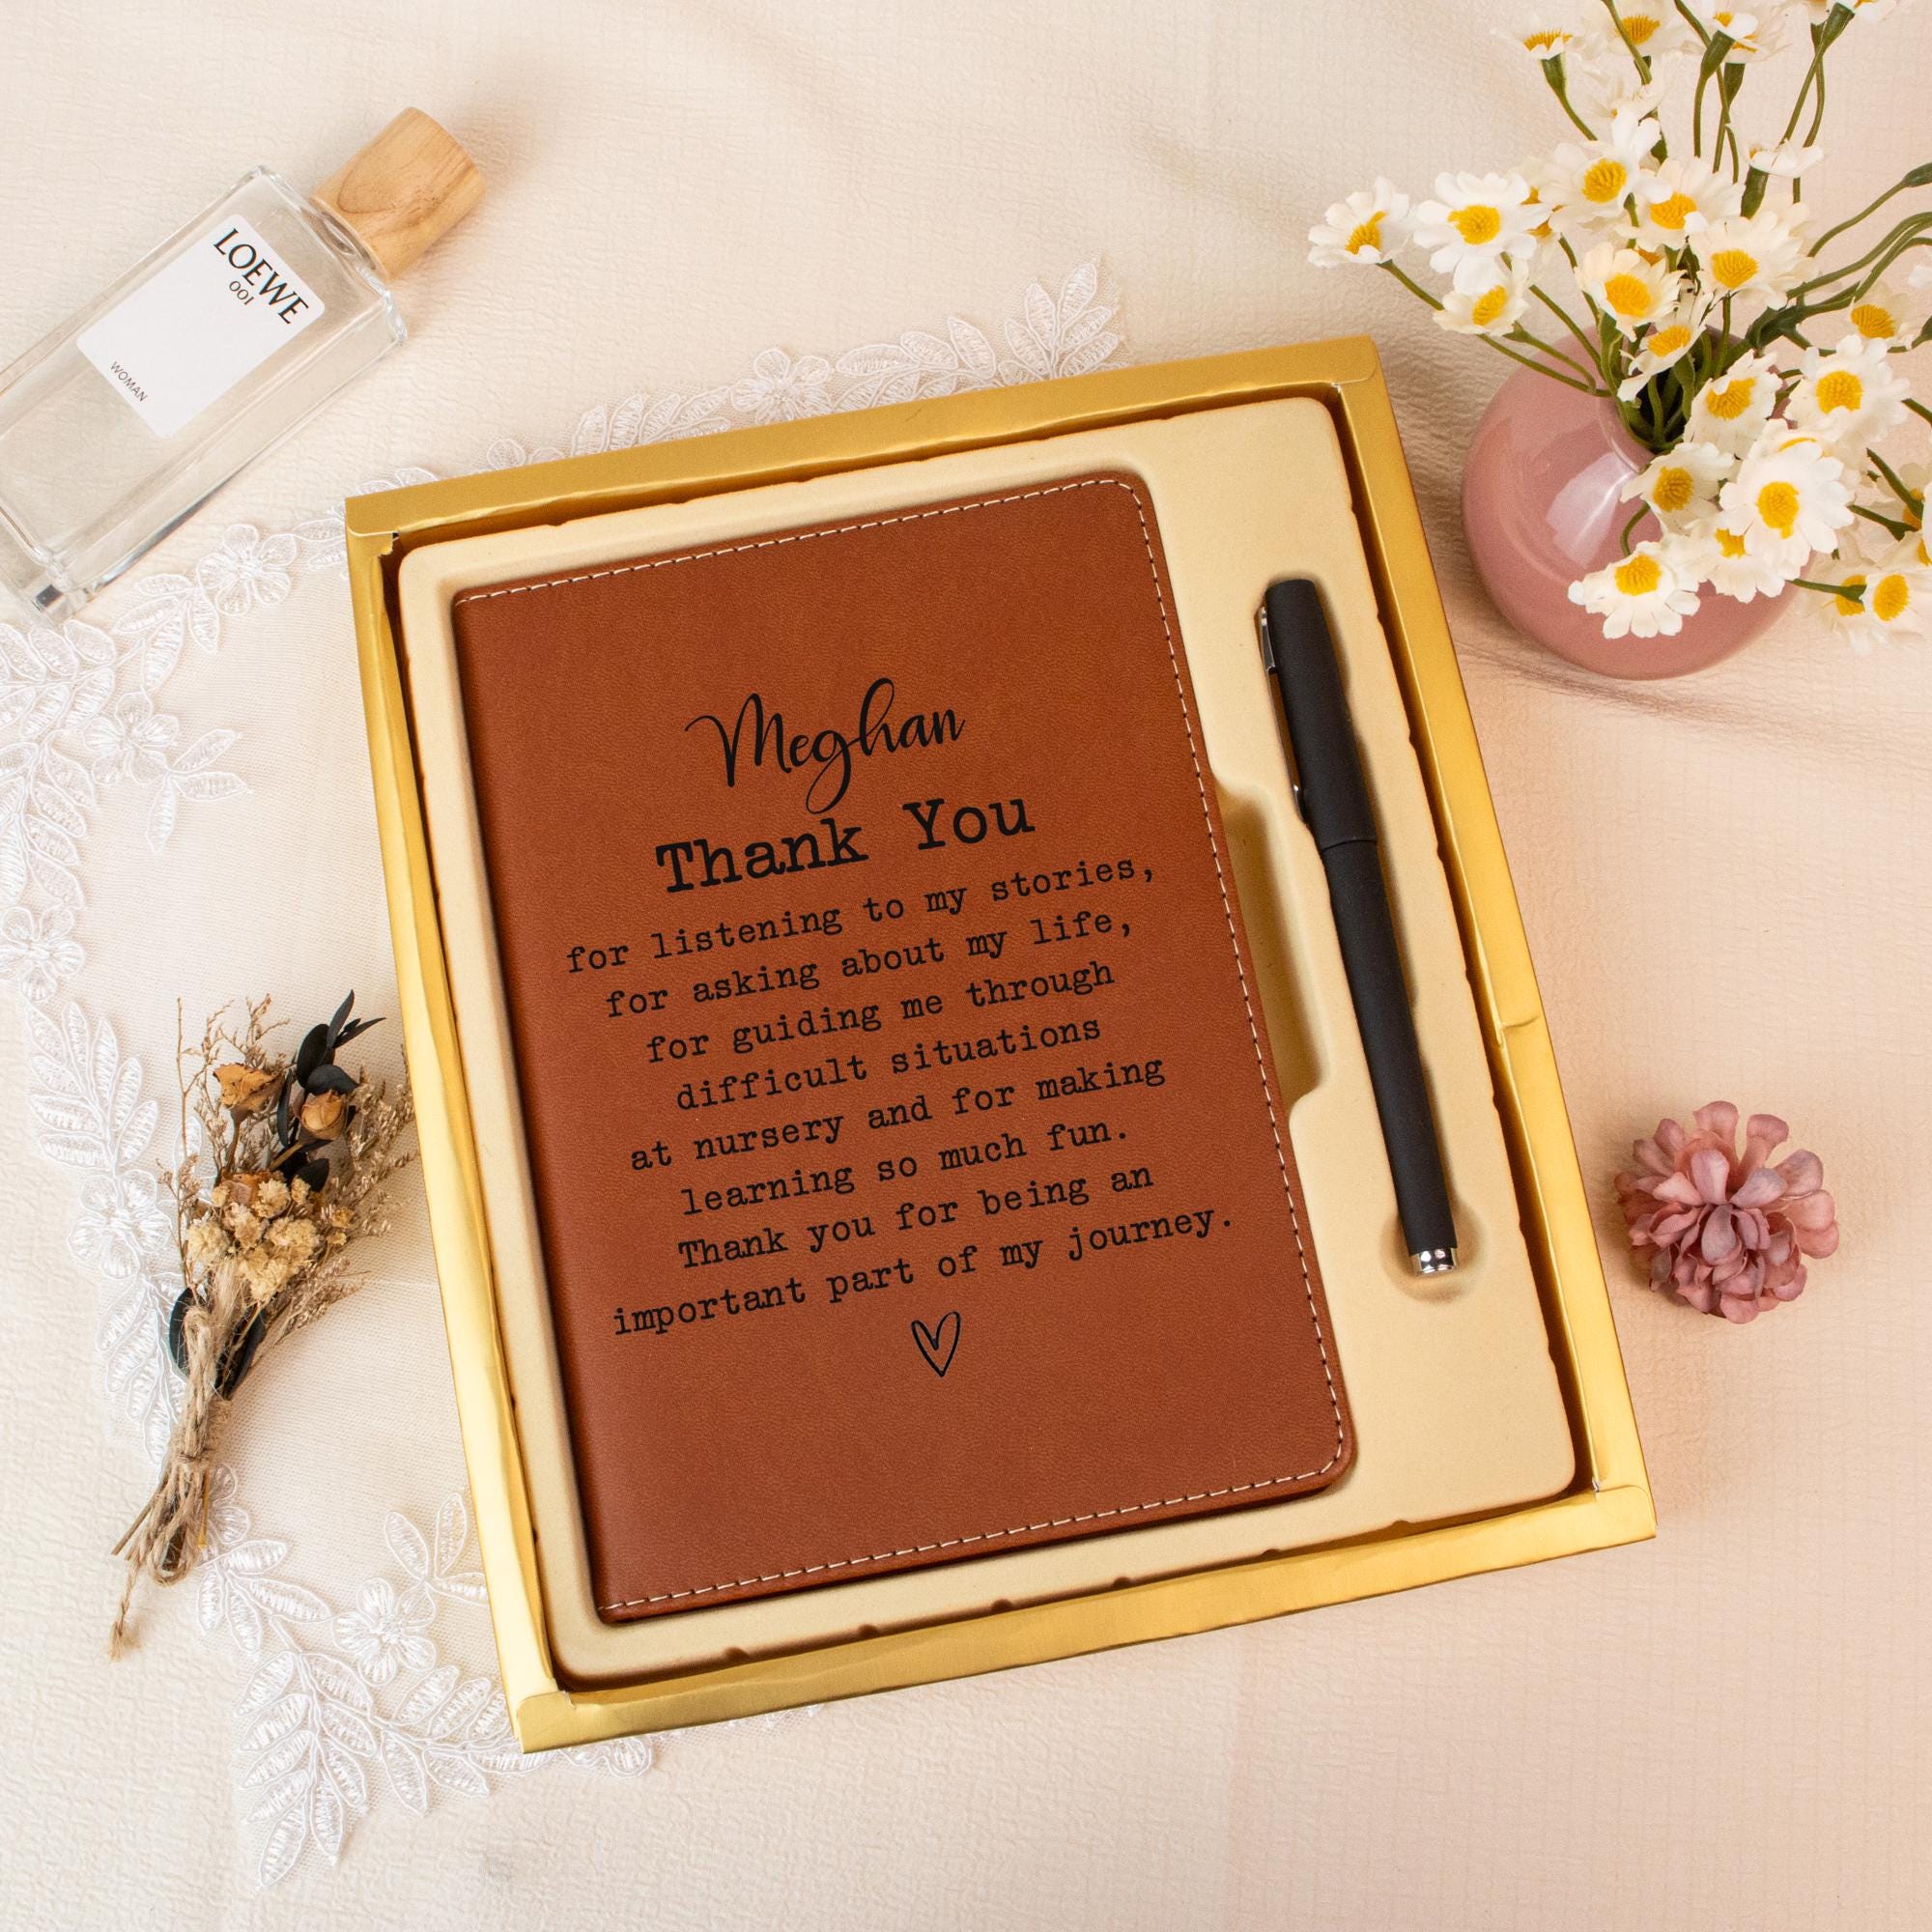 LOEWE
001
WOMAN
Meghan
Thank You
for listening to my stories,
for asking about my life,
for guiding me through
difficult situations
at nursery and for making
learning so much fun.
Thank you for being an
important part of my journey.